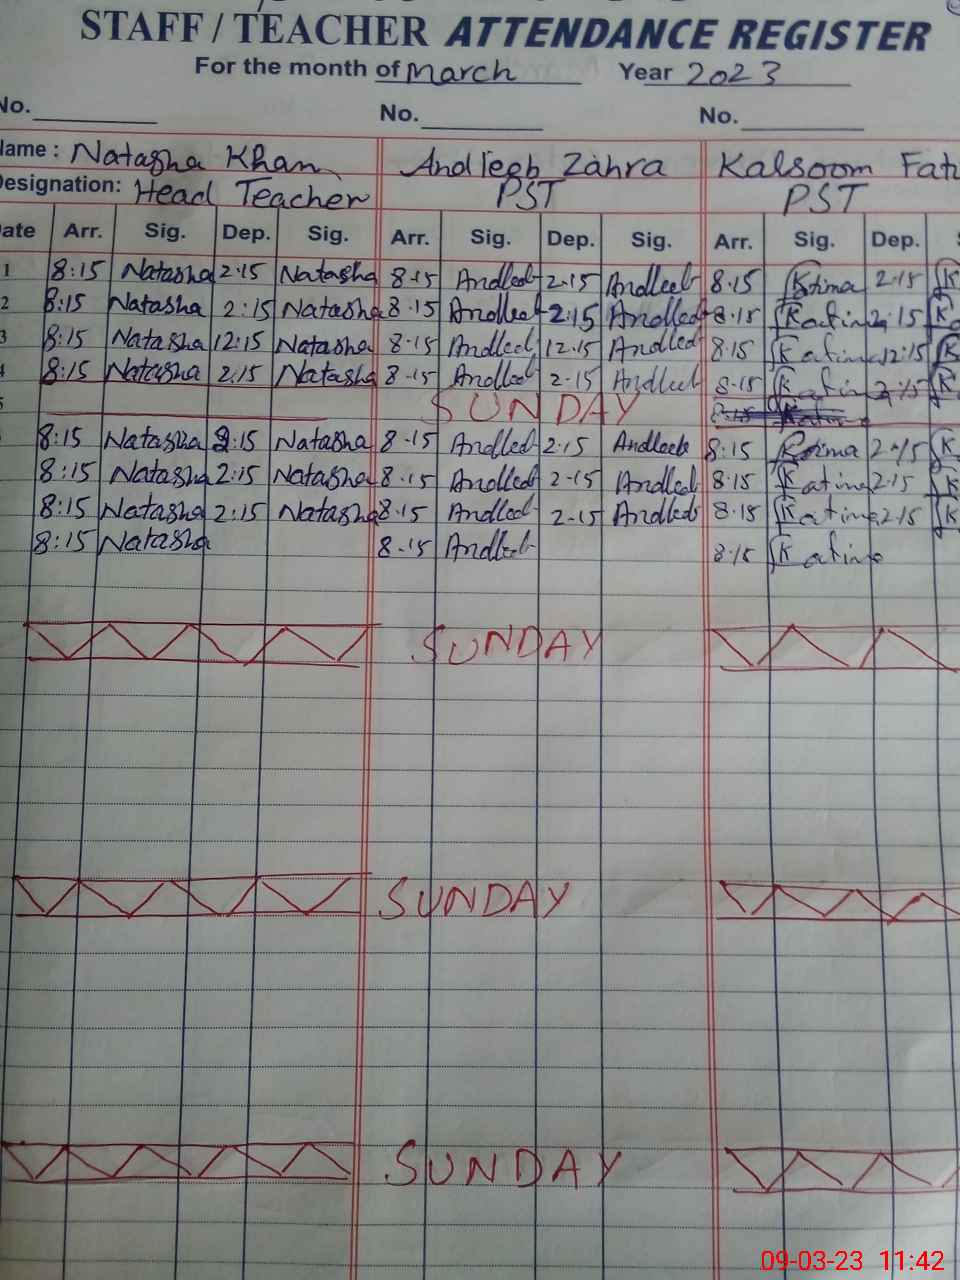 STAFF / TEACHER ATTENDANCE REGISTER
For the month of March Year 2023
No. No. No.
Name : Natasha Khan Andleeb Zahra Kalsoom Fat
Designation: Head Teacher PST PST
Date Arr. Sig. Dep. Sig. Arr. Sig. Dep. Sig. Arr. Sig. Dep. S
1 8:15 Natasha 2:15 Natasha 8-15 Andleeb 2-15 Andleeb 8-15 Katima 2-15 K
2 8:15 Natasha 2:15 Natasha 8-15 Andleeb 2:15 Andleeb 8-15 Katima 2-15 K
3 8:15 Natasha 12:15 Natasha 8-15 Andleeb 12-15 Andleeb 8-15 Katima 12:15 K
4 8:15 Natasha 2:15 Natasha 8-15 Andleeb 2-15 Andleeb 8-15 Katima 2-15 K
5 SUNDAY
8:15 Natasha 2:15 Natasha 8-15 Andleeb 2-15 Andleeb 8-15 Katima 2-15 K
8:15 Natasha 2:15 Natasha 8-15 Andleeb 2-15 Andleeb 8-15 Katima 2-15 K
8:15 Natasha 2:15 Natasha 8-15 Andleeb 2-15 Andleeb 8-15 Katima 2-15 K
8:15 Natasha 8-15 Andleeb 8-15 Katima
SUNDAY
SUNDAY
SUNDAY
09-03-23 11:42